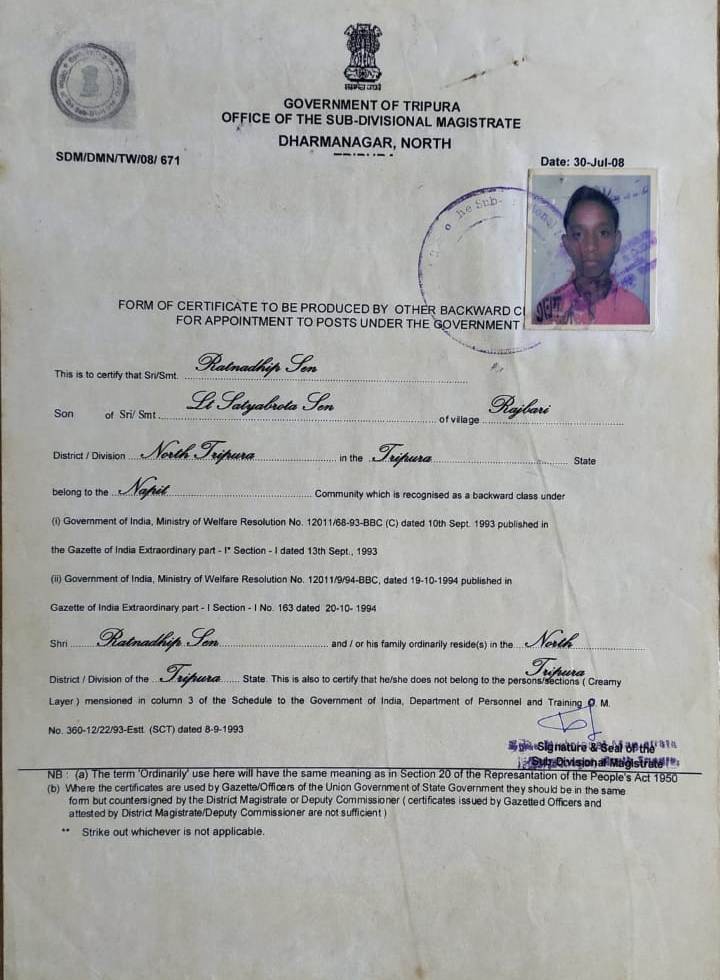 GOVERNMENT OF TRIPURA
OFFICE OF THE SUB-DIVISIONAL MAGISTRATE
DHARMANAGAR, NORTH
SDM/DMN/TW/08/ 671
Date: 30-Jul-08
he Sub-
FORM OF CERTIFICATE TO BE PRODUCED BY OTHER BACKWARD C
FOR APPOINTMENT TO POSTS UNDER THE GOVERNMENT
This is to certify that Sri/Smt. Ratnadhip Sen
Son of Sri/ Smt Lt Satyabrota Sen of village Rajbari
District / Division North Tripura in the Tripura State
belong to the Napit Community which is recognised as a backward class under
(i) Government of India, Ministry of Welfare Resolution No. 12011/68-93-BBC (C) dated 10th Sept. 1993 published in
the Gazette of India Extraordinary part - I* Section - I dated 13th Sept., 1993
(ii) Government of India, Ministry of Welfare Resolution No. 12011/9/94-BBC, dated 19-10-1994 published in
Gazette of India Extraordinary part - I Section - I No. 163 dated 20-10- 1994
Shri Ratnadhip Sen and / or his family ordinarily reside(s) in the North
Tripura
District / Division of the Tripura State. This is also to certify that he/she does not belong to the persons/sections ( Creamy
Layer ) mentioned in column 3 of the Schedule to the Government of India, Department of Personnel and Training O. M.
No. 360-12/22/93-Estt. (SCT) dated 8-9-1993
Signature & Seal of the
Sub-Divisional Magistrate
NB : (a) The term 'Ordinarily' use here will have the same meaning as in Section 20 of the Represantation of the People's Act 1950
(b) Where the certificates are used by Gazette/Officers of the Union Government of State Government they should be in the same
form but countersigned by the District Magistrate or Deputy Commissioner ( certificates issued by Gazetted Officers and
attested by District Magistrate/Deputy Commissioner are not sufficient )
** Strike out whichever is not applicable.